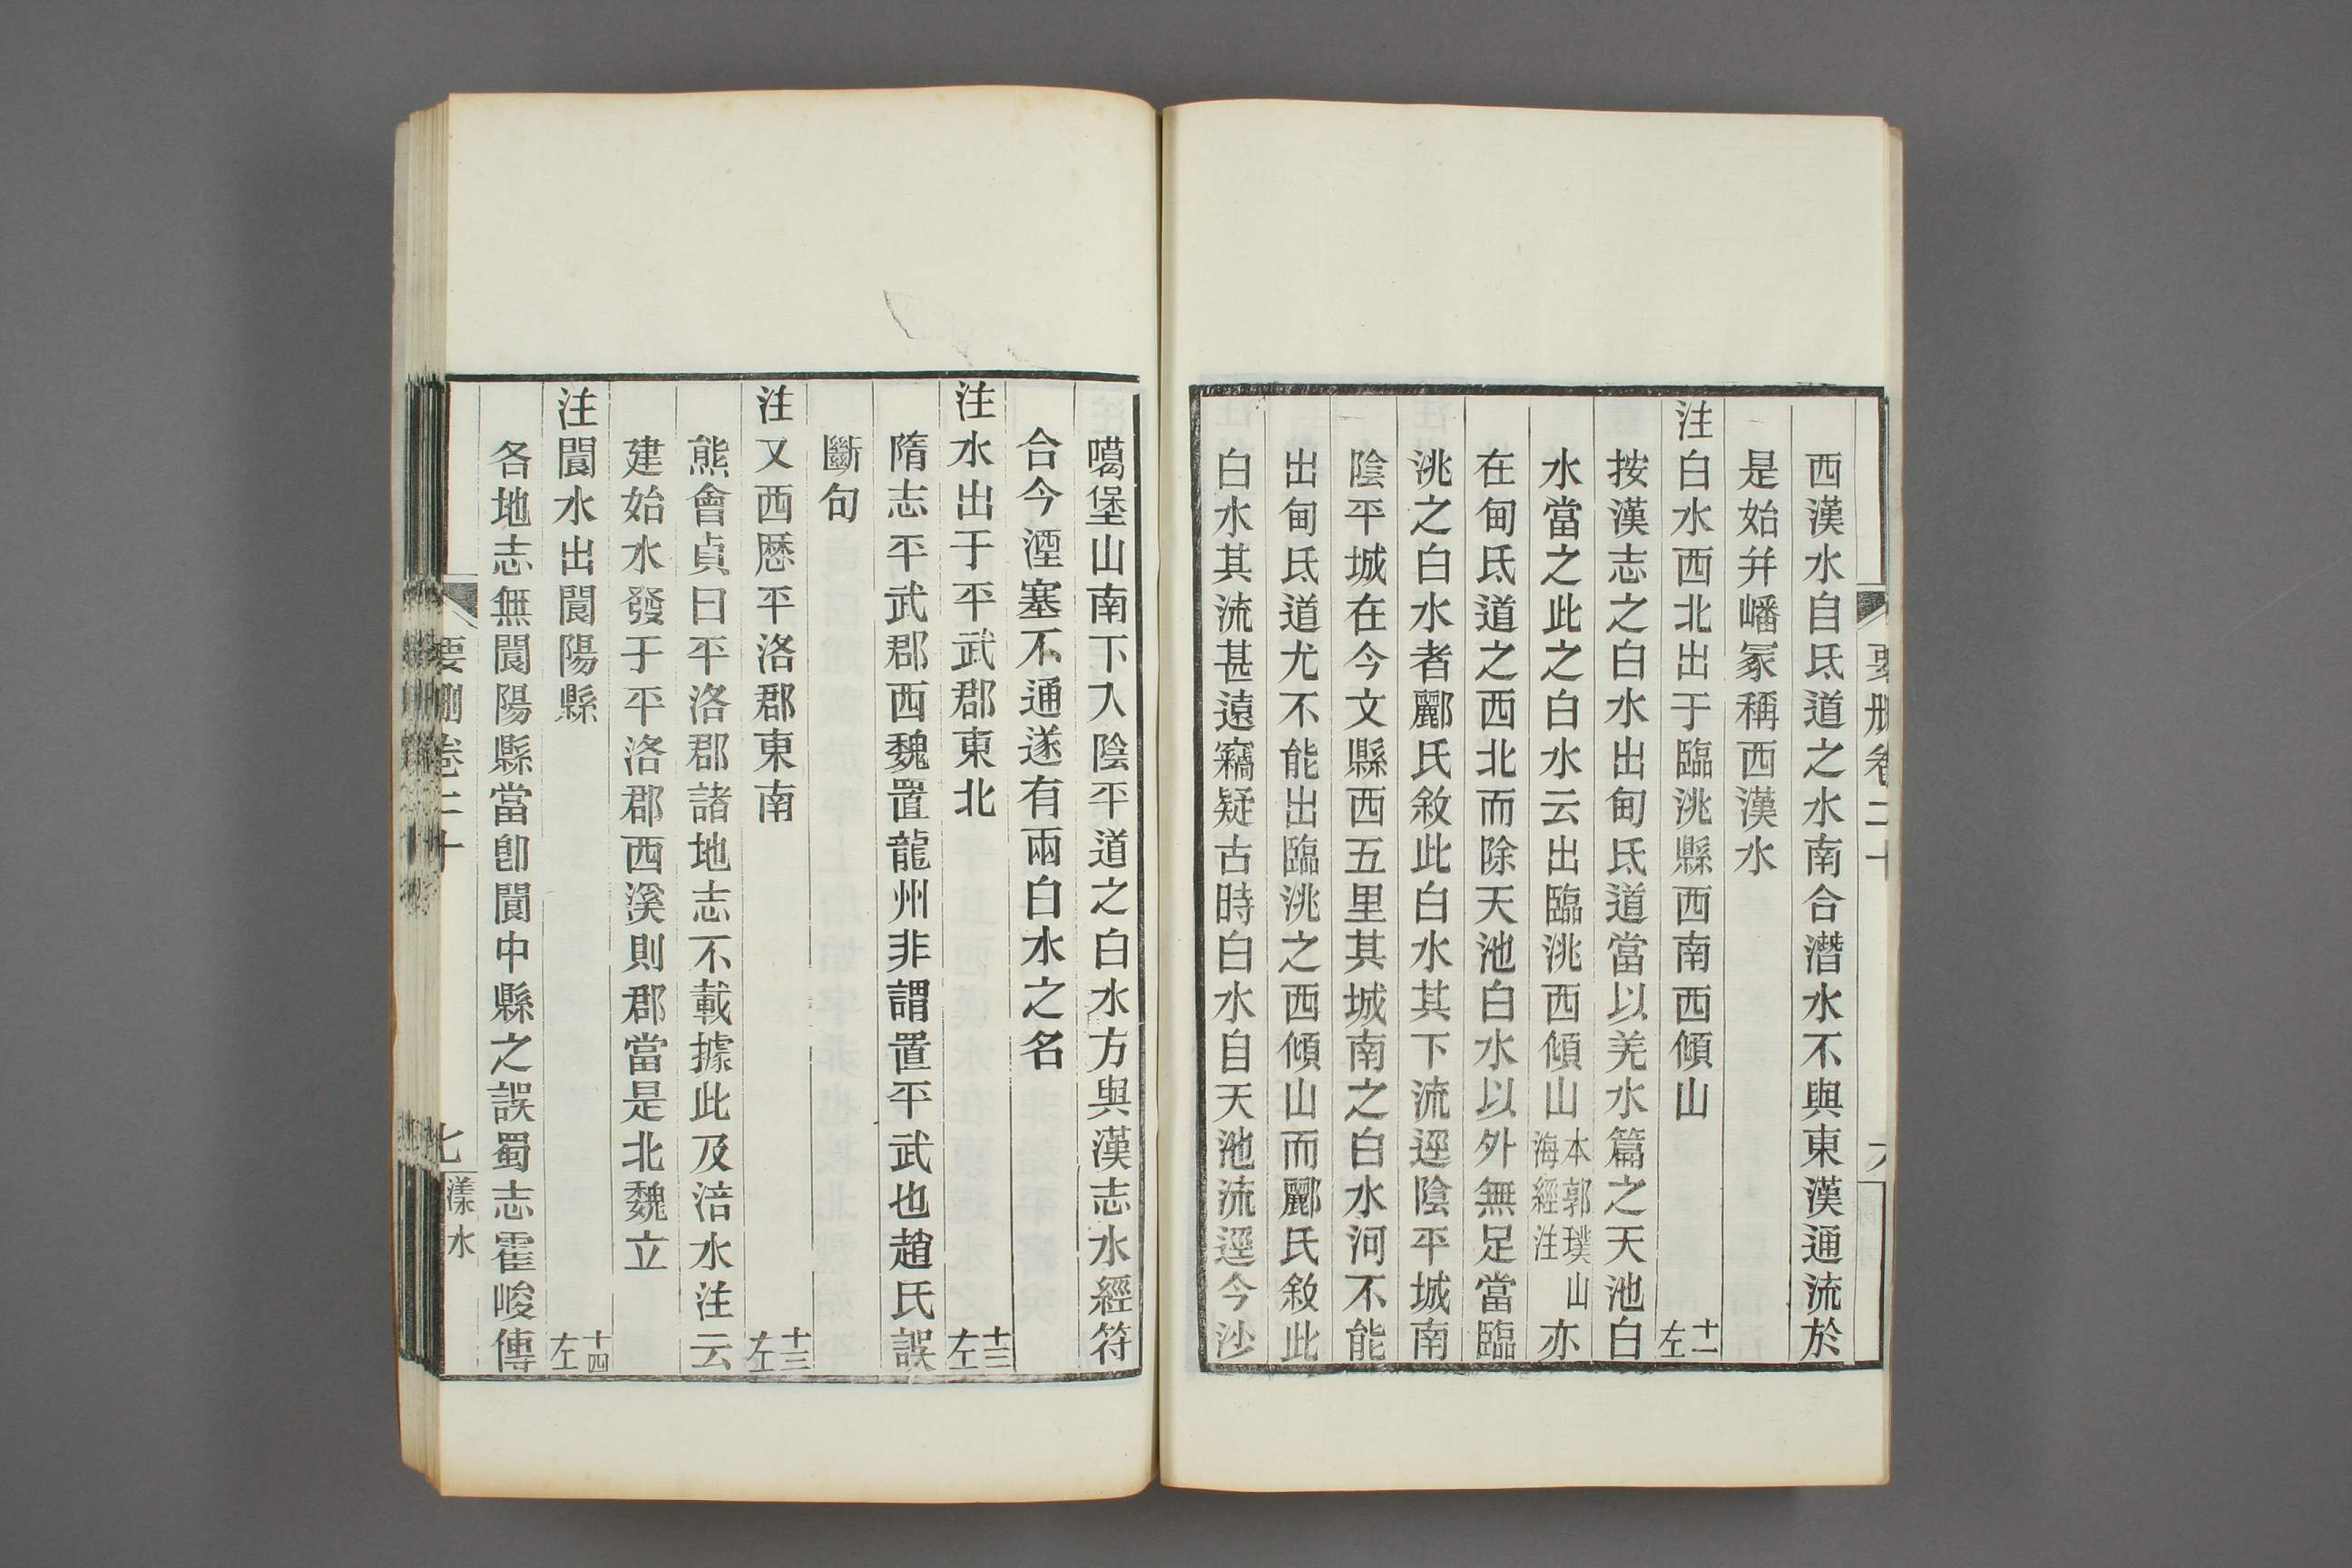 西漢水自氐道之水南合潛水不與東漢通流於
是始幷嶓冢稱西漢水
注白水西北出于臨洮縣西南西傾山 十一左
按漢志之白水出甸氐道當以羌水篇之天池白
水當之此之白水云出臨洮西傾山本郭璞山海經注亦
在甸氐道之西北而除天池白水以外無足當臨
洮之白水者酈氏敘此白水其下流逕陰平城南
陰平城在今文縣西五里其城南之白水河不能
出甸氐道尤不能出臨洮之西傾山而酈氏敘此
白水其流甚遠竊疑古時白水自天池流逕今沙
噶堡山南下入陰平道之白水方與漢志水經符
合今湮塞不通遂有兩白水之名
注水出于平武郡東北 十三左
隋志平武郡西魏置龍州非謂置平武也趙氏誤
斷句
注又西厯平洛郡東南 十三左
熊會貞曰平洛郡諸地志不載據此及涪水注云
建始水發于平洛郡西溪則郡當是北魏立
注閬水出閬陽縣 十四左
各地志無閬陽縣當卽閬中縣之誤蜀志霍峻傳
要刪卷二十 七 漾水